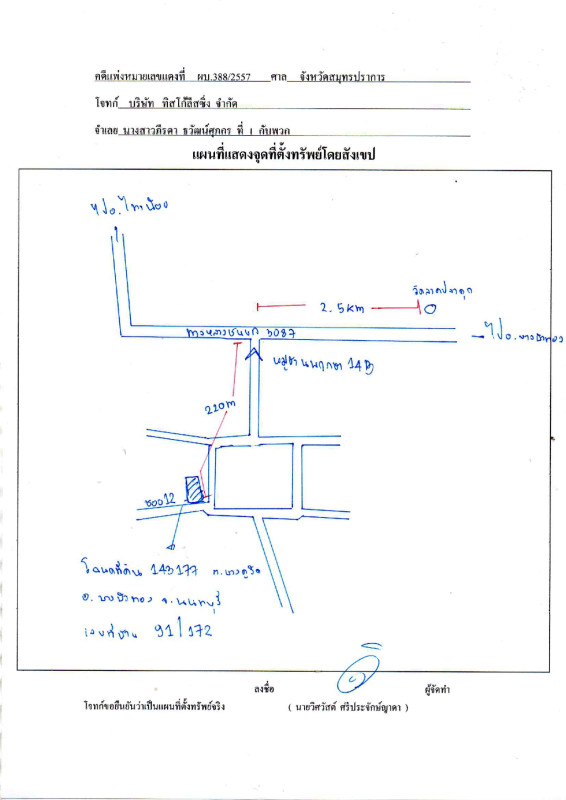 คดีแพ่งหมายเลขแดงที่ ผบ.388/2557 ศาล จังหวัดสมุทรปราการ
โจทก์ บริษัท ทิสโก้ลีสซิ่ง จำกัด
จำเลย นางสาวภีรดา ธวัฒน์ศุภกร ที่ 1 กับพวก
แผนที่แสดงจุดที่ตั้งทรัพย์โดยสังเขป
ไป อ.ไทรน้อย
วัดลาดปลาดุก
2.5km
ทางหลวงชนบท 5087
ไป อ.บางบัวทอง
หมู่บ้านพฤกษา 14
220m
ซอย12
โฉนดที่ดิน 143177 ต.บางคูรัด
อ.บางบัวทอง จ.นนทบุรี
เลขที่บ้าน 91/172
ลงชื่อ ผู้จัดทำ
โจทก์ขอยืนยันว่าเป็นแผนที่ตั้งทรัพย์จริง ( นายวิศวัสต์ ศรีประจักษ์ญาดา )